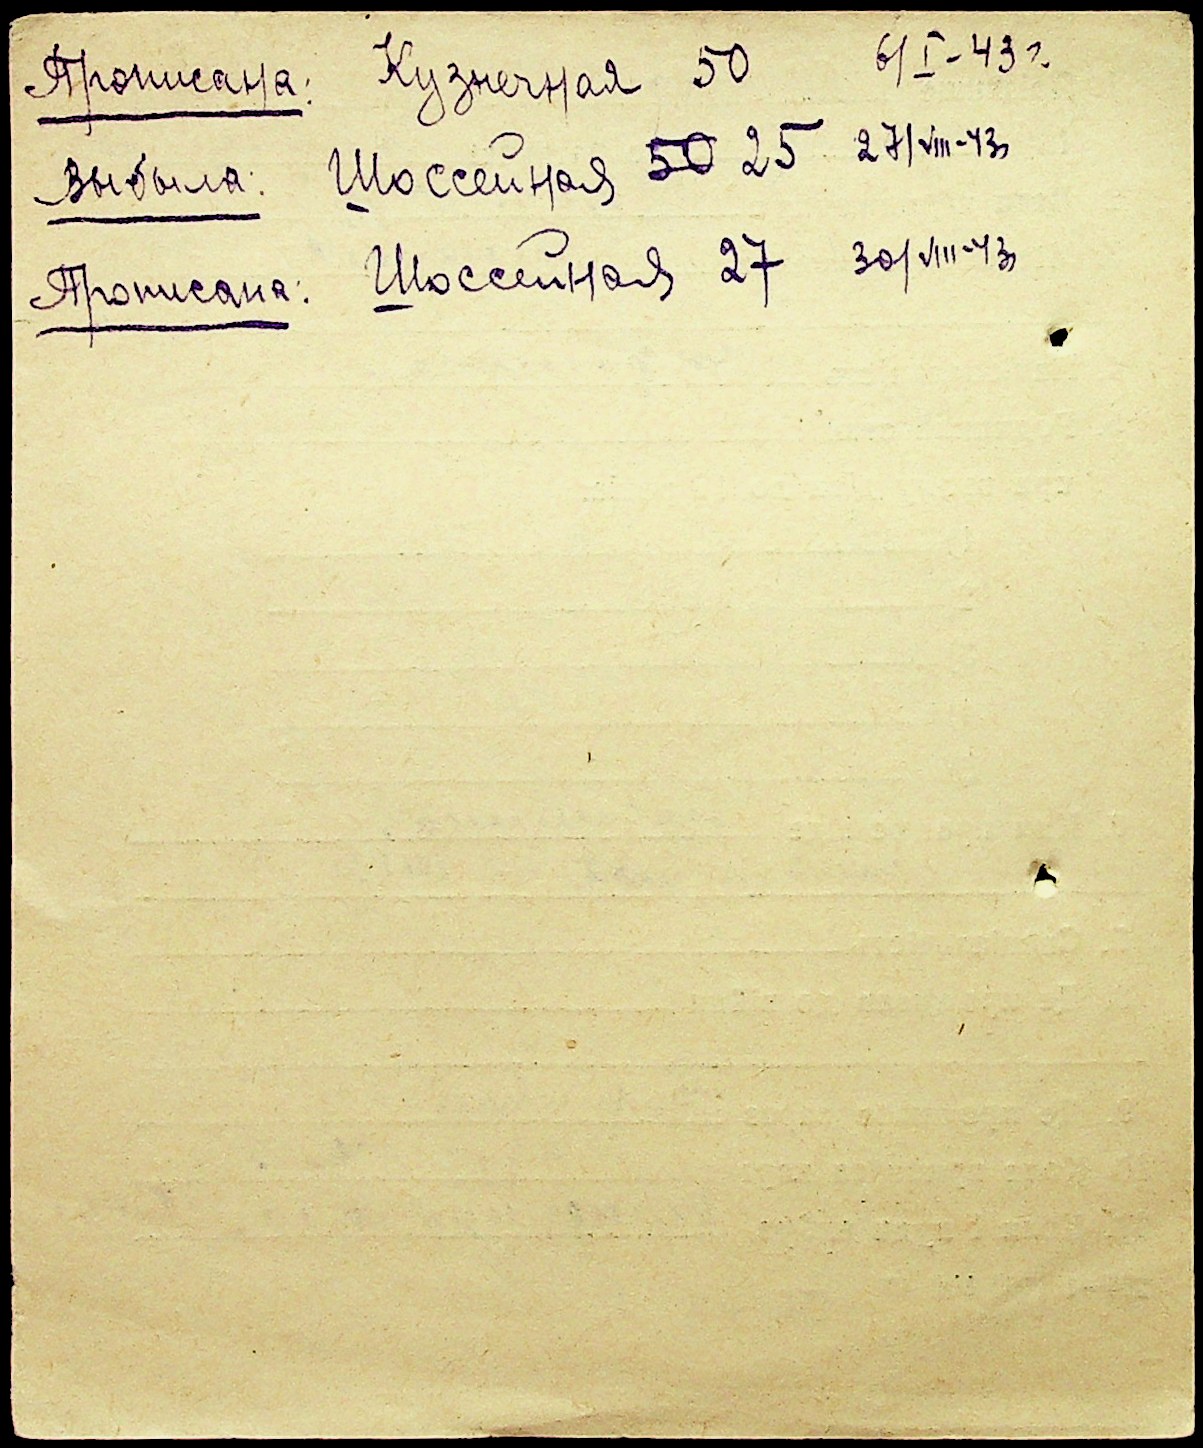 Прописана: Кузнечная 50 6/I-43 г.
Выбыла: Шоссейная 50 25 27/VIII-43
Прописана: Шоссейная 27 30/VIII-43